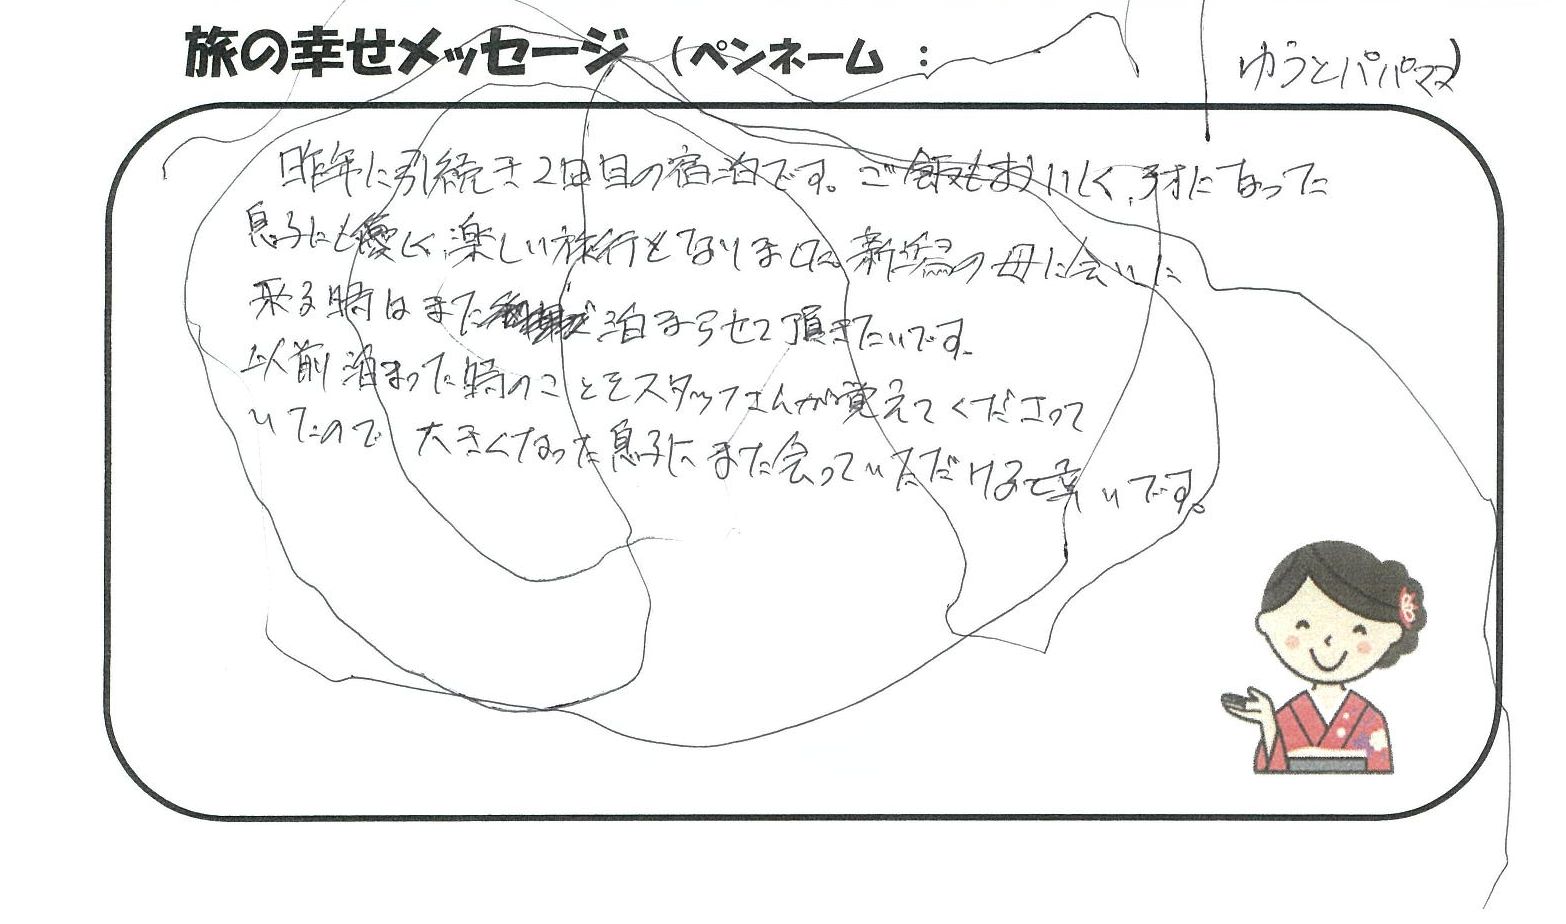 旅の幸せメッセージ (ペンネーム : ゆうとパパママ)
昨年に引続き2回目の宿泊です。ご飯もおいしく、1才になった
息子にも優しく楽しい旅行となりました。新潟の母に会いに
来る時はまた泊まらせて頂きたいです。
以前泊まった時のことをスタッフさんが覚えてくださって
いたので 大きくなった息子にまた会っていただけると幸いです。